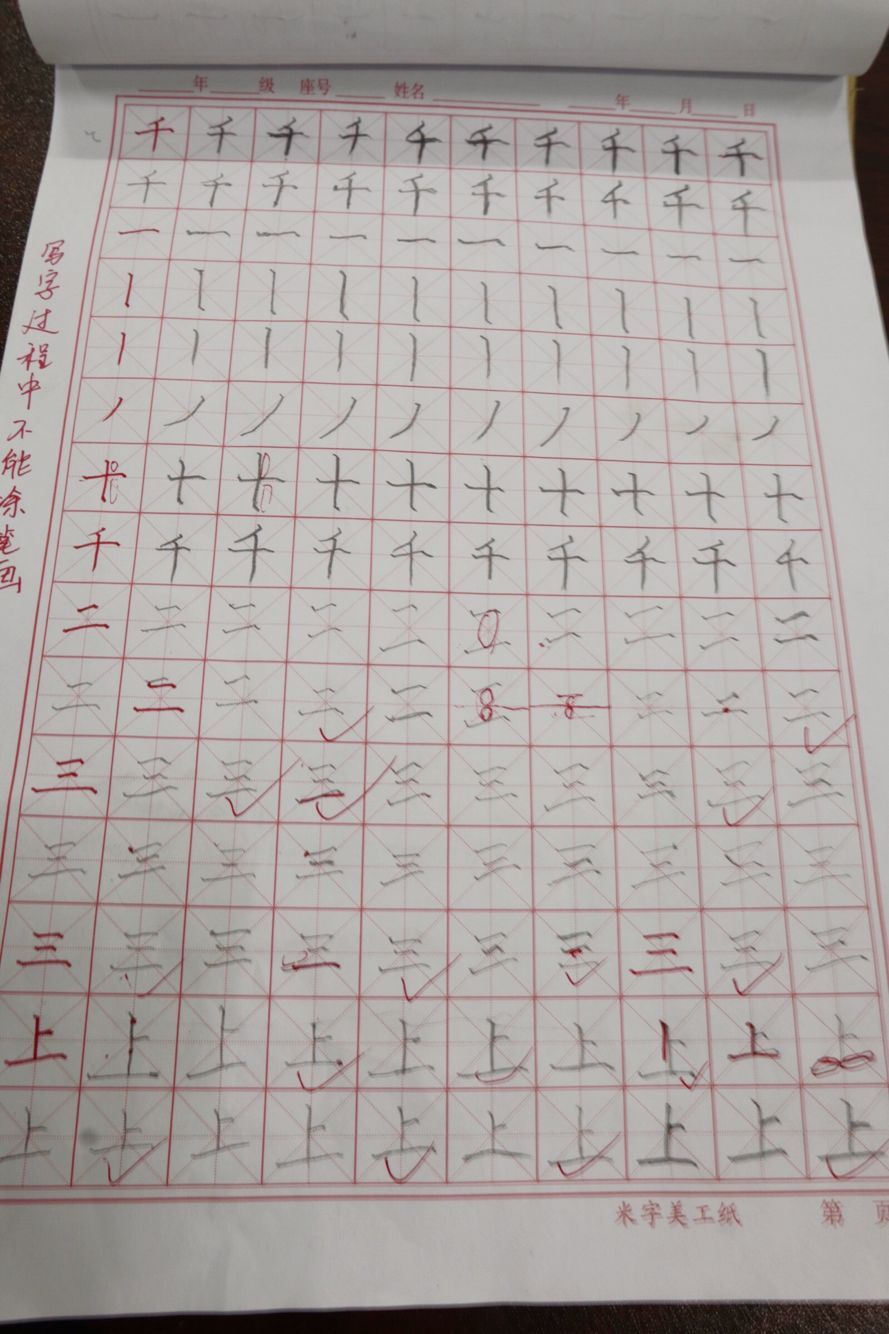 年 级 座号 姓名 年 月 日
千 千 千 千 千 千 千 千 千 千
千 千 千 千 千 千 千 千 千 千
一 一 一 一 一 一 一 一 一 一
丨 丨 丨 丨 丨 丨 丨 丨 丨 丨
丨 丨 丨 丨 丨 丨 丨 丨 丨 丨
丿 丿 丿 丿 丿 丿 丿 丿 丿 丿
十 十 十 十 十 十 十 十 十 十
千 千 千 千 千 千 千 千 千 千
二 二 二 二 二 二 二 二 二 二
二 二 二 二 二 二 二 二 二 二
三 三 三 三 三 三 三 三 三 三
三 三 三 三 三 三 三 三 三 三
三 三 三 三 三 三 三 三 三 三
上 上 上 上 上 上 上 上 上 上
上 上 上 上 上 上 上 上 上 上
写字过程中不能涂笔画
米字美工纸 第 页